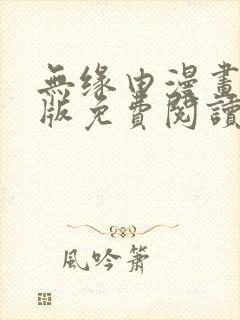 無缘由漫畫
版免費閱讀
風吟簫